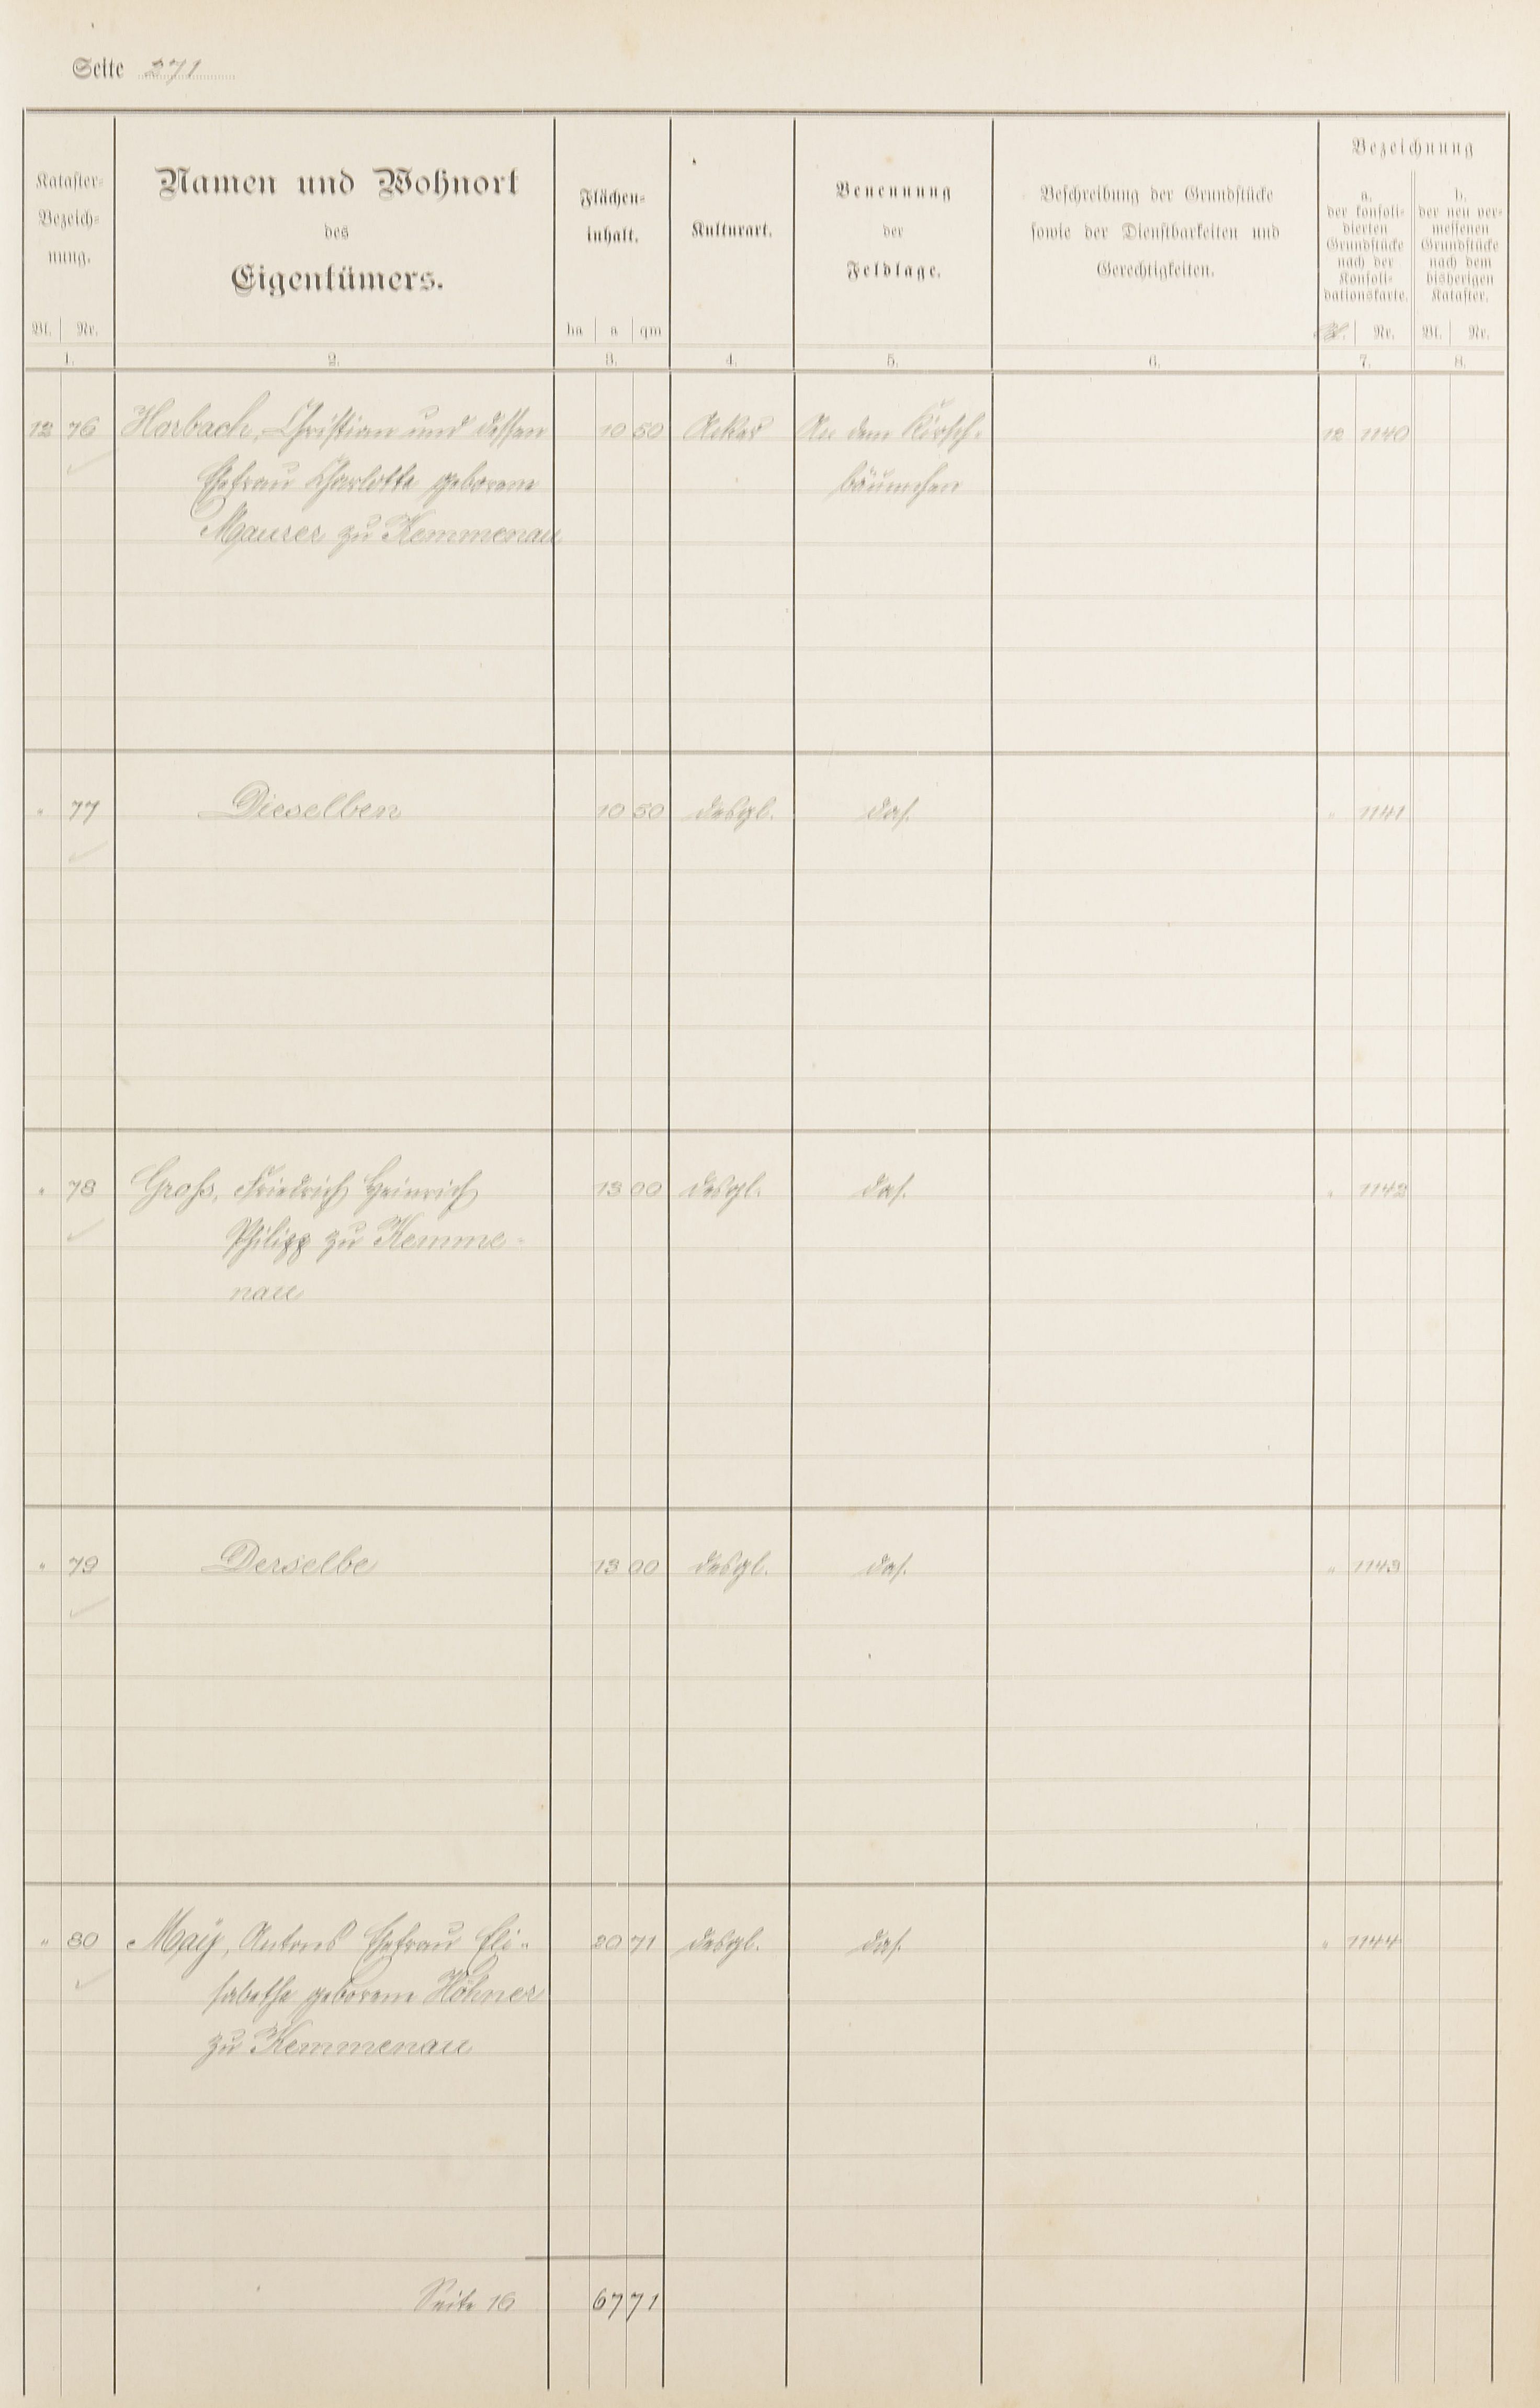 Seite 271
Kataster-
Bezeich-
nung.
Bl. Nr.
1.
Namen und Wohnort
des
Eigentümers.
2.
Flächen-
inhalt.
ha a qm
3.
Kulturart.
4.
Benennung
der
Feldlage.
5.
Beschreibung der Grundstücke
sowie der Dienstbarkeiten und
Gerechtigkeiten.
6.
Bezeichnung
a.
der konsoli-
dierten
Grundstücke
nach der
Konsoli-
dationskarte.
Nr.
7.
b.
der neu ver-
messenen
Grundstücke
nach dem
bisherigen
Kataster.
Bl. Nr.
8.
12 76 Horbach, Christian und dessen 10 50 Acker An dem Kirsch- 12 1140
Ehefrau Charlotte geborene bäumchen
Maurer zu Kemmenau
" 77 Dieselben 10 50 desgl. das. " 1141
" 78 Groß, Friedrich Heinrich 13 00 desgl. das. " 1142
Philipp zu Kemme-
nau
" 79 Derselbe 13 00 desgl. das. " 1143
" 80 May, Antons Ehefrau Eli- 20 71 desgl. das. " 1144
sabethe geborene Höhner
zu Kemmenau
Seite 16 67 71